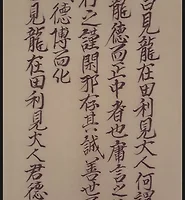 曰見龍在田利見大人何謂
龍德而正中者也庸言之
行之謹閑邪存其誠善世
德博而化
見龍在田利見大人君德